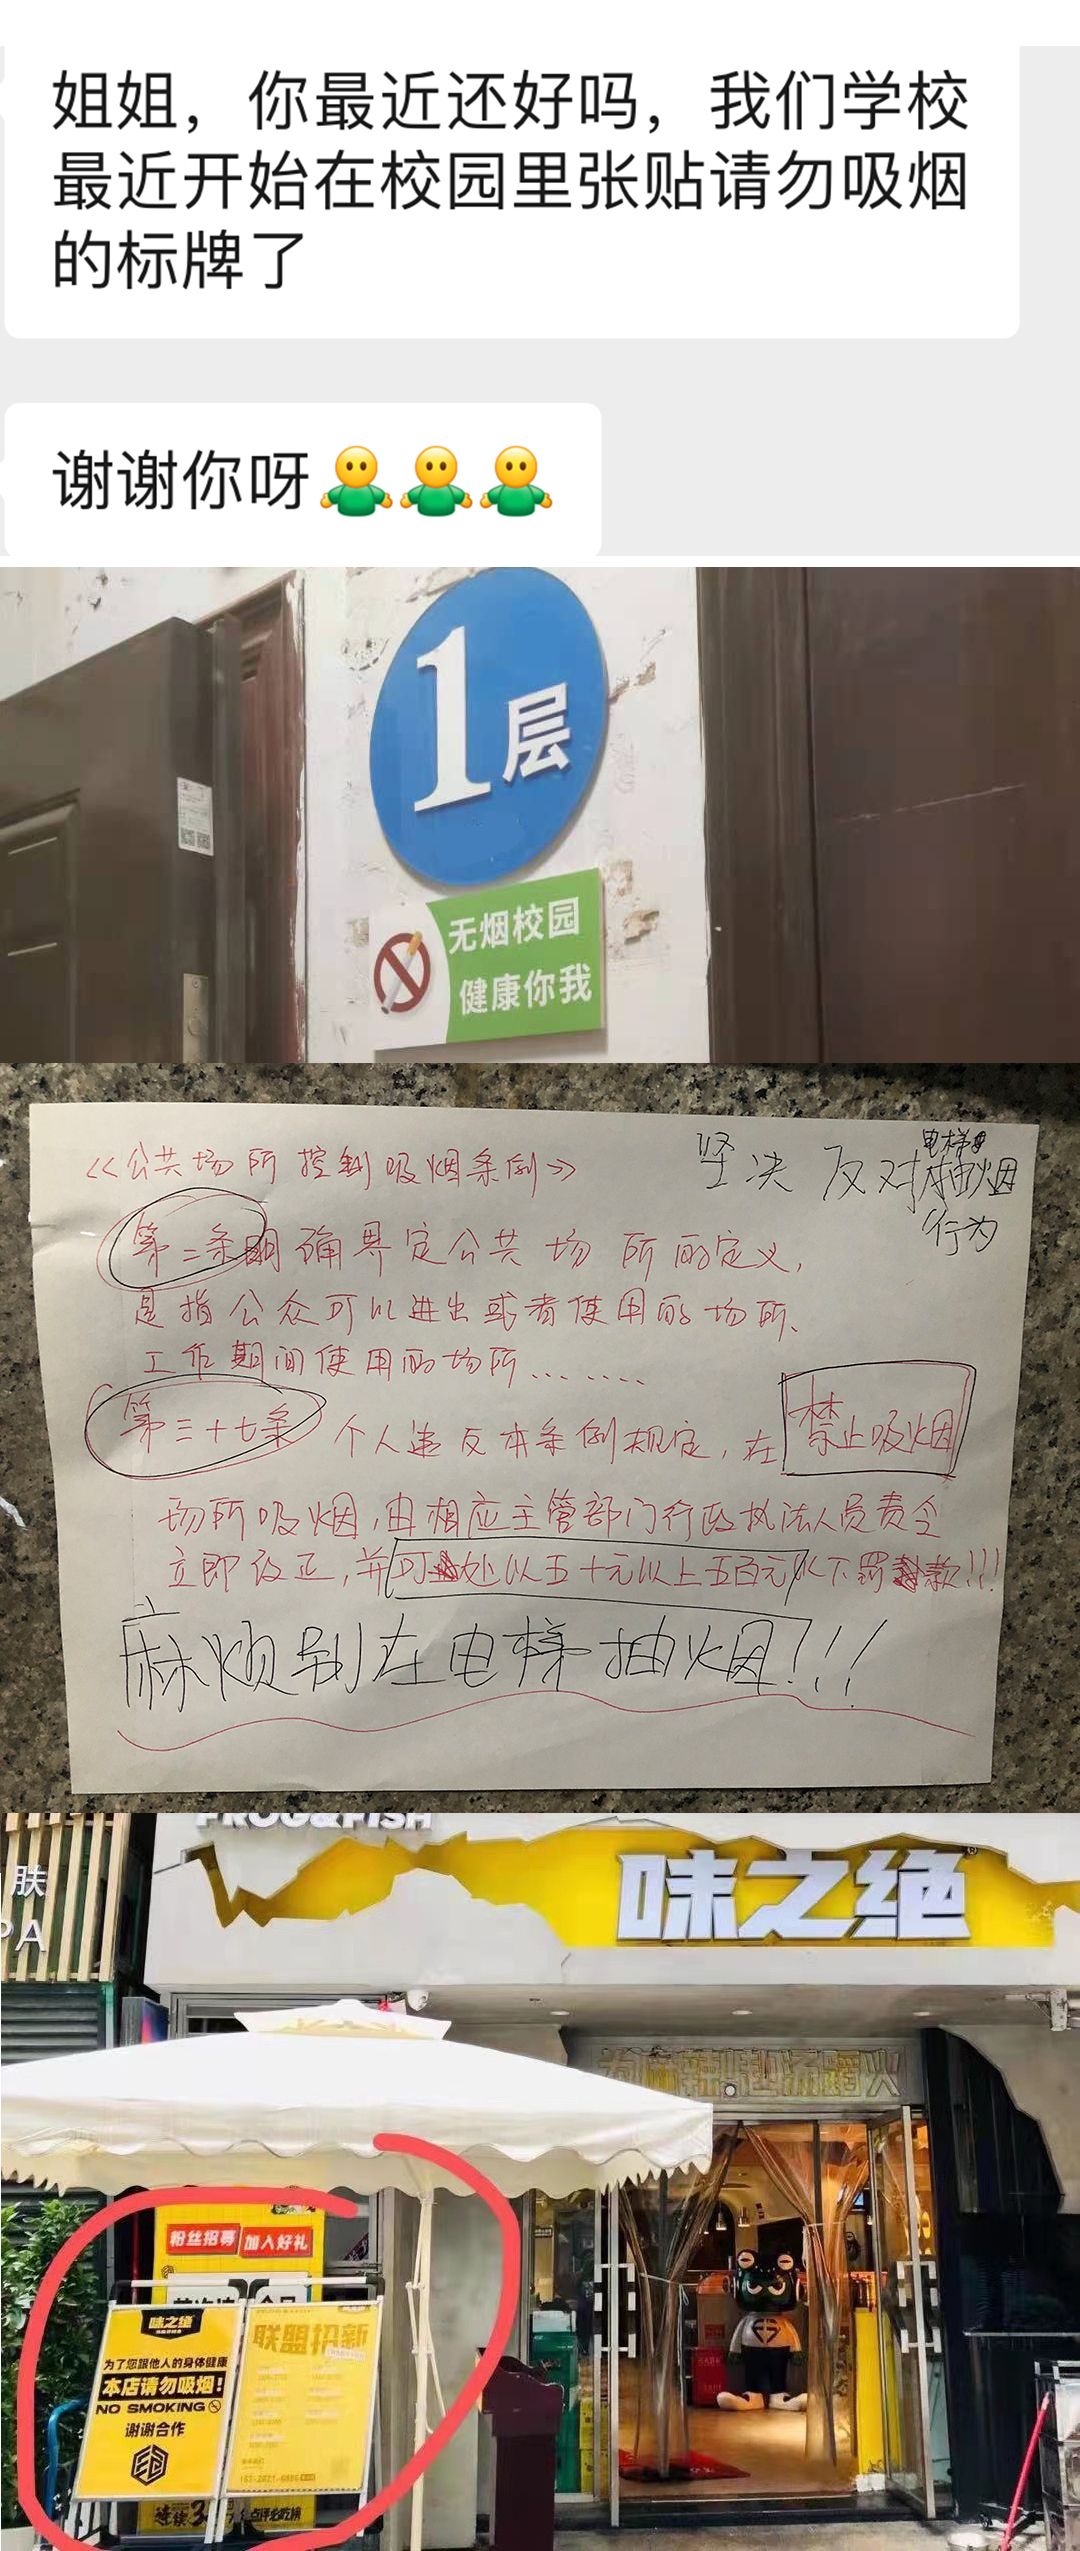 姐姐，你最近还好吗，我们学校
最近开始在校园里张贴请勿吸烟
的标牌了
谢谢你呀
1层
无烟校园
健康你我
坚决反对电梯抽烟
行为
《公共场所控制吸烟条例》
第二条明确界定公共场所的定义，
是指公众可以进出或者使用的场所、
工作期间使用的场所.......
第三十七条 个人违反本条例规定，在禁止吸烟
场所吸烟，由相应主管部门行政执法人员责令
立即改正，并可处以五十元以上五百元以下罚款!!!
麻烦别在电梯抽烟!!!
FROG&FISH
味之绝
肤
PA
粉丝招募 加入好礼
味之绝
为了您跟他人的身体健康
本店请勿吸烟!
NO SMOKING
谢谢合作
联盟招新